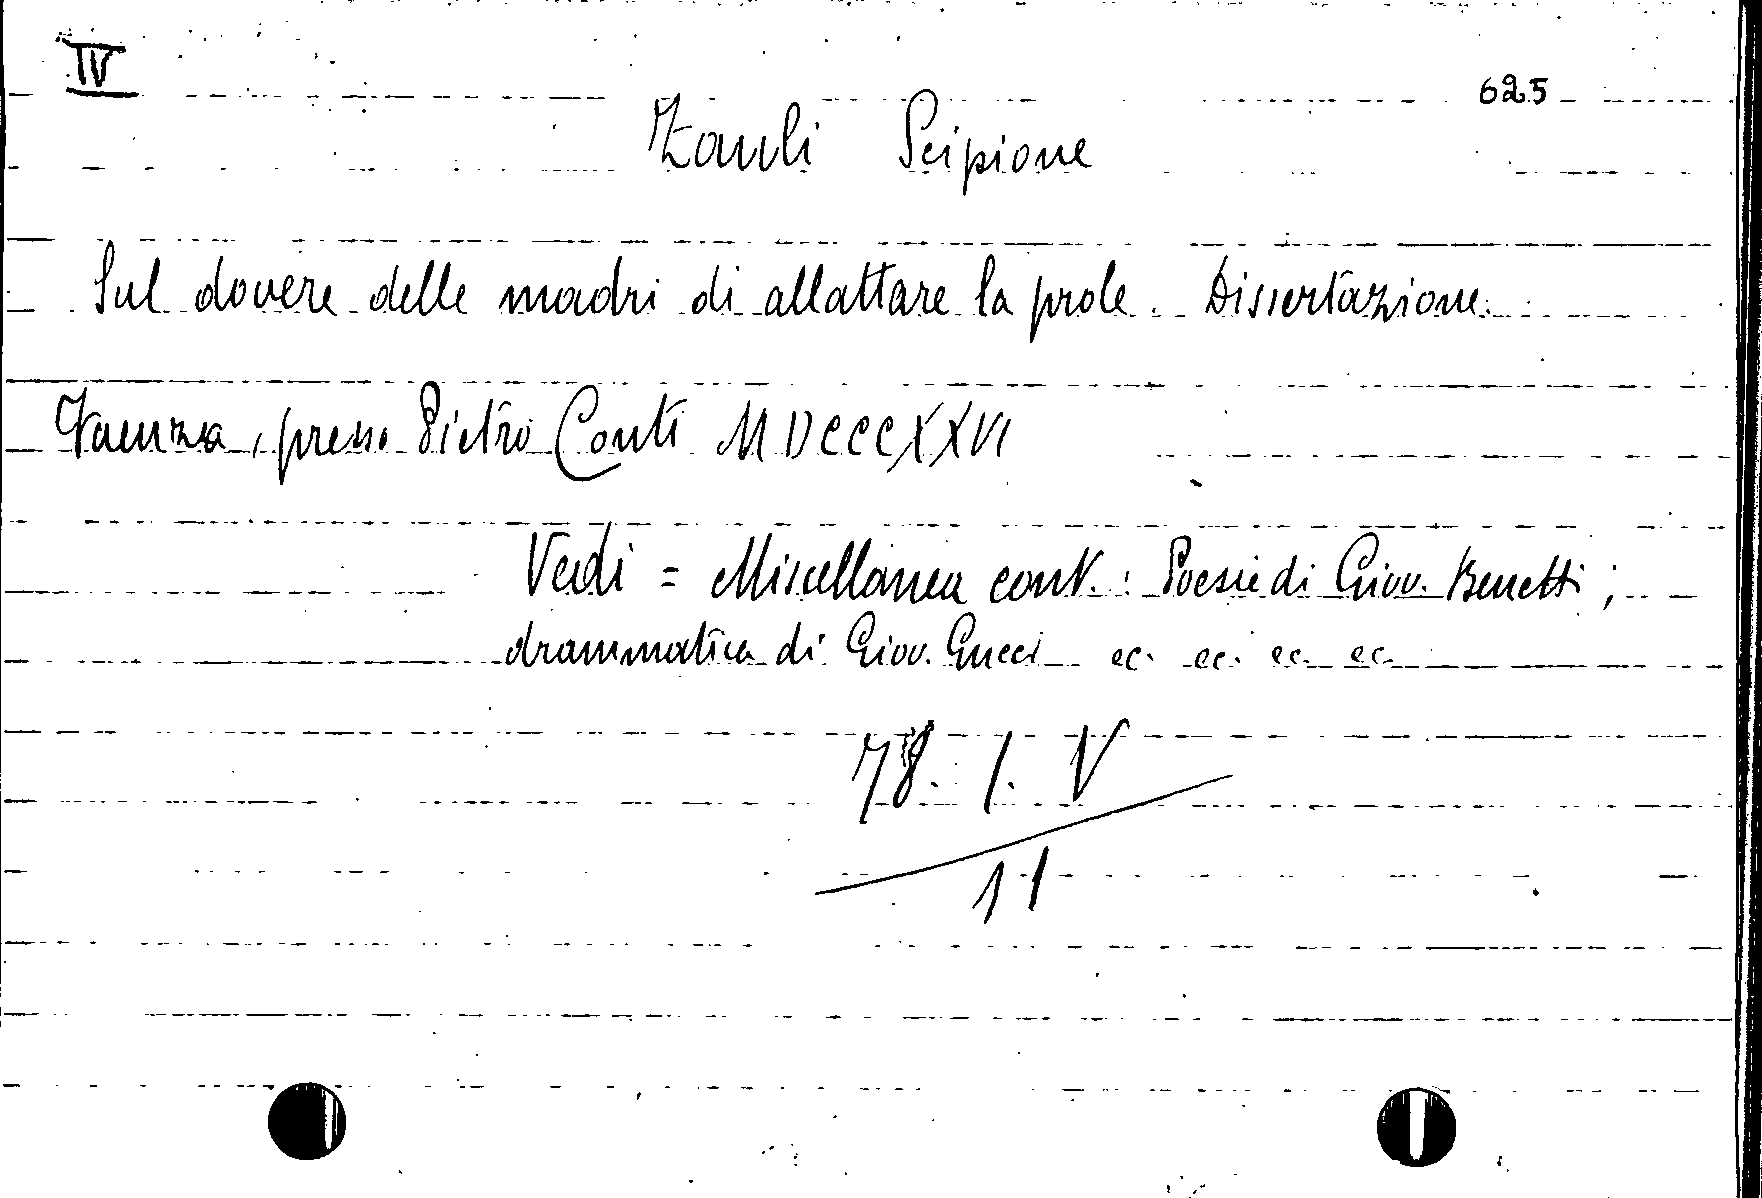 IV
625
Zauli Scipione
Sul dovere delle madri di allattare la prole. Dissertazione.
Faenza, presso Pietro Conti MDCCCXXVI
Vedi = Miscellanea cont. : Poesie di Giov. Benetti ;
drammatica di Giov. Gucci ec. ec. ec. ec.
78. 1. V
11